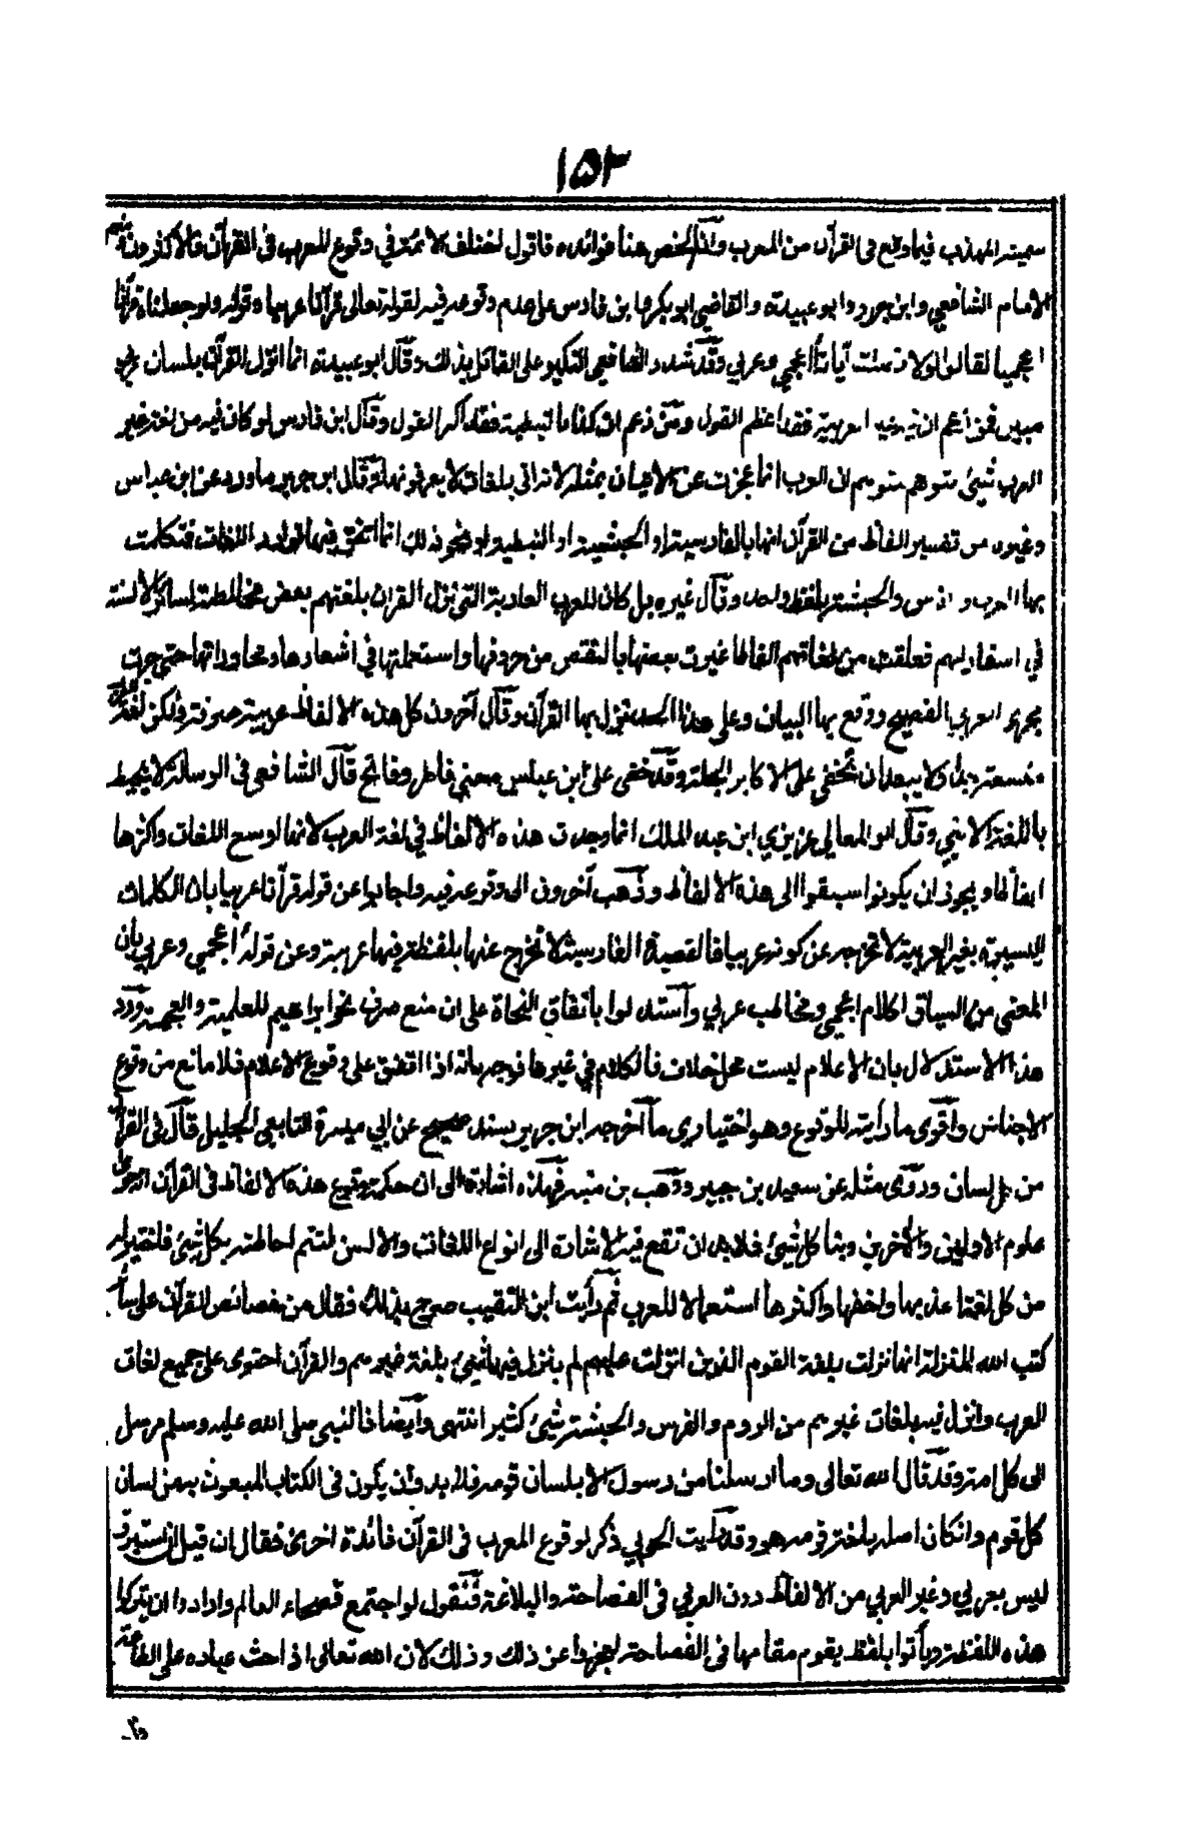 ١٥٣
سميته المهذب فيما وقع في القرآن من المعرب وأنا ألخص هنا فوائده فاقول اختلف الائمة في وقوع المعرب في القرآن فالاكثرون ومنهم
الامام الشافعي وابن جرير وابو عبيدة والقاضي ابو بكر وابن فارس على عدم وقوعه فيه لقوله تعالى قرآنا عربيا وقوله ولو جعلناه قرآنا
اعجميا لقالوا لولا فصلت آياته أاعجمي وعربي وقد شدد الشافعي النكير على القائل بذلك وقال ابو عبيدة انما انزل القرآن بلسان عربي
مبين فمن زعم ان فيه غير العربية فقد اعظم القول ومن زعم ان كذا بالنبطية فقد اكبر القول وقال ابن فارس لو كان فيه من لغة غير
العرب شيئ لتوهم متوهم ان العرب انما عجزت عن الاتيان بمثله لانه اتى بلغات لا يعرفونها وقال ابن جرير ما ورد عن ابن عباس
وغيره من تفسير الفاظ من القرآن انها بالفارسية او الحبشية او النبطية او نحو ذلك انما اتفق فيها توارد اللغات فتكلمت
بها العرب والفرس والحبشة بلفظ واحد وقال غيره بل كان للعرب العاربة التي نزل القرآن بلغتهم بعض مخالطة لسائر الالسنة
في اسفارهم فعلقت من لغاتهم الفاظا غيرت بعضها بالنقص من حروفها واستعملتها في اشعارها ومحاوراتها حتى جرت
مجرى العربي الفصيح ووقع بها البيان وعلى هذا الحد نزل بها القرآن وقال آخرون كل هذه الالفاظ عربية صرفة ولكن لغة العرب
متسعة جدا ولا يبعد ان تخفى على الاكابر الجلة وقد خفى على ابن عباس معنى فاطر وفاتح قال الشافعي في الرسالة لا يحيط
باللغة الا نبي وقال ابو المعالي عزيزي ابن عبد الملك انما وجدت هذه الالفاظ في لغة العرب لانها اوسع اللغات واكثرها
الفاظا ويجوز ان يكونوا سبقوا الى هذه الالفاظ وذهب آخرون الى وقوعه فيه واجابوا عن قوله قرآنا عربيا بان الكلمات
اليسيرة بغير العربية لا تخرجه عن كونه عربيا فالقصيدة الفارسية لا تخرج عنها بلفظة فيها عربية وعن قوله أاعجمي وعربي بأن
المعنى من السياق اكلام اعجمي ومخاطب عربي واستدلوا باتفاق النحاة على ان منع صرف نحو ابراهيم للعلمية والعجمة ورد
هذا الاستدلال بان الاعلام ليست محل خلاف فالكلام في غيرها فوجه بانه اذا اتفق على وقوع الاعلام فلا مانع من وقوع
الاجناس واقوى ما رأيته للوقوع وهو اختياري ما أخرجه ابن جرير بسند صحيح عن ابي ميسرة التابعي الجليل قال في القرآن
من كل لسان وروى مثله عن سعيد بن جبير ووهب بن منبه فهذه اشارة الى ان حكمة وقوع هذه الالفاظ في القرآن انه حوى
علوم الاولين والآخرين ونبأ كل شيئ فلا بد ان تقع فيه الاشارة الى انواع اللغات والالسن لتتم احاطته بكل شيئ فاختير له
من كل لغة اعذبها واخفها واكثرها استعمالا للعرب ثم رأيت ابن النقيب صرح بذلك فقال من خصائص القرآن على سائر
كتب الله المنزلة انها نزلت بلغة القوم الذين انزلت عليهم لم ينزل فيها شيئ بلغة غيرهم والقرآن احتوى على جميع لغات
العرب وانزل فيه بلغات غيرهم من الروم والفرس والحبشة شيئ كثير انتهى وأيضا فالنبي صلى الله عليه وسلم مرسل
الى كل امة وقد قال الله تعالى وما ارسلنا من رسول الا بلسان قومه فلا بد وأن يكون في الكتاب المبعوث به من لسان
كل قوم وان كان اصله بلغة قومه هو وقد رأيت الخويي ذكر لوقوع المعرب في القرآن فائدة اخرى فقال ان قيل ان استبرق
ليس بعربي وغير العربي من الالفاظ دون العربي في الفصاحة والبلاغة فنقول لو اجتمع فصحاء العالم وارادوا ان يتركوا
هذه اللفظة ويأتوا بلفظ يقوم مقامها في الفصاحة لعجزوا عن ذلك وذلك لان الله تعالى اذا حث عباده على الطاعة